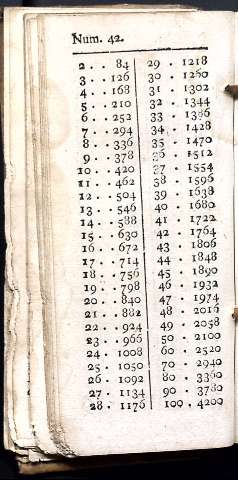 Num. 42.
2 . . 84
3 . . 126
4 . . 168
5 . . 210
6 . . 252
7 . . 294
8 . . 336
9 . . 378
10 . . 420
11 . . 462
12 . . 504
13 . . 546
14 . . 588
15 . . 630
16 . . 672
17 . . 714
18 . . 756
19 . . 798
20 . . 840
21 . . 882
22 . . 924
23 . . 966
24 . 1008
25 . 1050
26 . 1092
27 . 1134
28 . 1176
29 . 1218
30 . 1260
31 . 1302
32 . 1344
33 . 1386
34 . 1428
35 . 1470
36 . 1512
37 . 1554
38 . 1596
39 . 1638
40 . 1680
41 . 1722
42 . 1764
43 . 1806
44 . 1848
45 . 1890
46 . 1932
47 . 1974
48 . 2016
49 . 2058
50 . 2100
60 . 2520
70 . 2940
80 . 3360
90 . 3780
100 . 4200